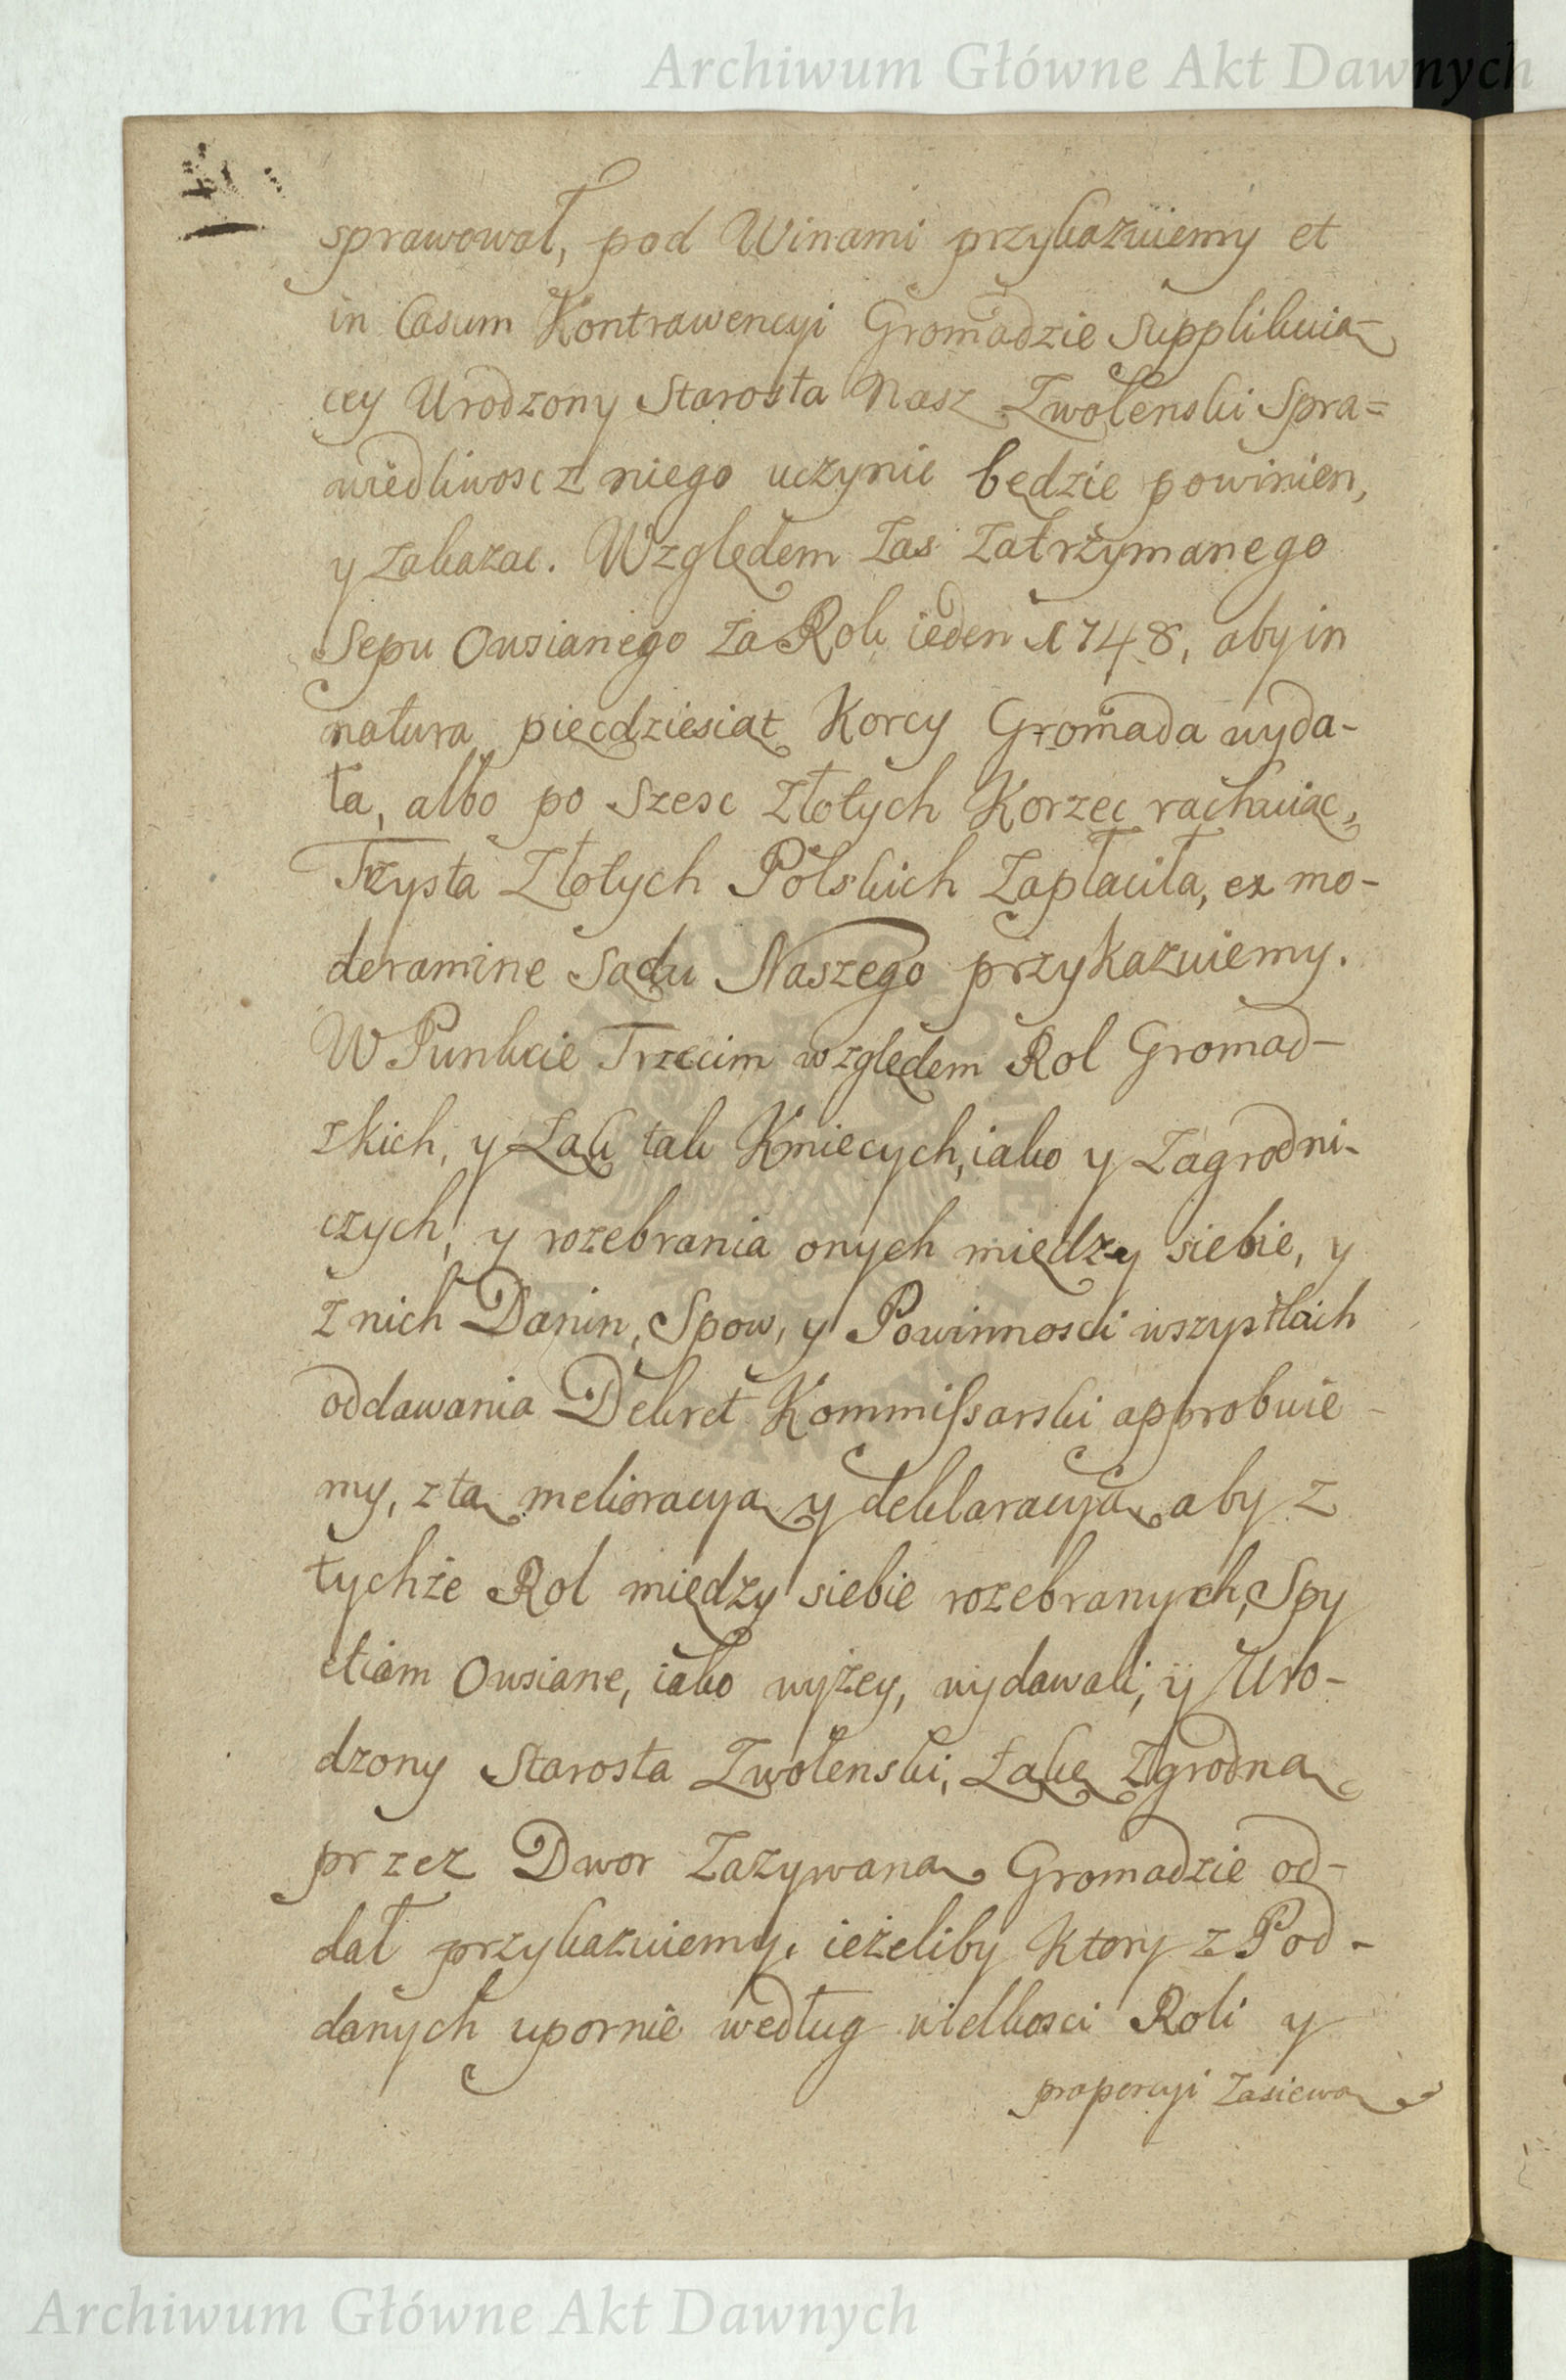 Archiwum Główne Akt Dawnych
sprawował, pod Winami przykazuiemy et
in Casum Kontrawencyi Gromadzie Supplikuią-
cey Urodzony Starosta Nasz Zwolenski Spra=
wiedliwosc z niego uczynic będzie powinien,
y zakazac. Względem zas zatrzymanego
Sepu Owsianego za Rok ieden 1748, aby in
natura pięcdziesiąt Korcy Gromada wyda-
ła, albo po szesc Złotych Korzec rachuiąc,
Trzysta Złotych Polskich zapłaciła, ex mo-
deramine Sądu Naszego przykazuiemy.
W Punkcie Trzecim względem Rol Gromad-
zkich, y Łąk tak Kmiecych, iako y Zagrodni-
czych, y rozebrania onych między siebie, y
z nich Danin, Spow, y Powinnosci wszystkich
oddawania Dekret Kommissarski approbuie-
my, z tą melioracyą y deklaracyą, aby z
tychże Rol między siebie rozebranych, Spy
etiam Owsiane, iako wyżey, wydawali, y Uro-
dzony Starosta Zwolenski, Łąkę Zgrodną
przez Dwor Zażywaną Gromadzie od-
dał przykazuiemy, ieżeliby ktory z Pod-
danych upornie według wielkosci Roli y
proporcyi Zasiewa
Archiwum Główne Akt Dawnych